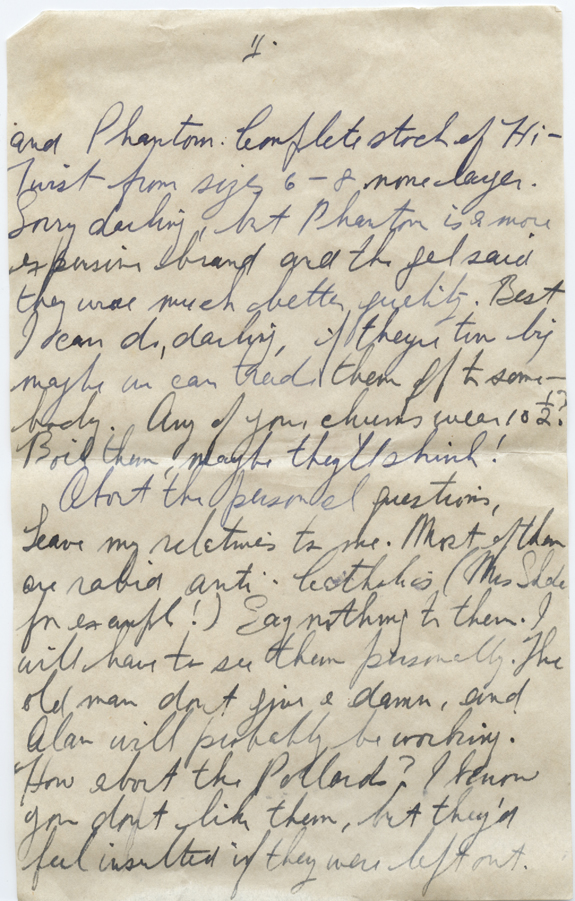 and Phantom. Complete stock of Hi-
Twist from sizes 6 - 8 none larger.
Sorry darling, but Phantom is a more
expensive brand and the gal said
they were much better quality. Best
I can do, darling, if they're too big
maybe we can trade them off to some-
body. Any of your chums wear 10 1/2?
Boil them, maybe they'll shrink!
About the personal questions,
Leave my relatives to me. Most of them
are rabid anti-Catholics (Mrs
for example!) Say nothing to them. I
will have to see them personally. The
old man don't give a damn, and
Alan will probably be working.
How about the Pollards? I know
you don't like them, but they'd
feel insulted if they were left out.